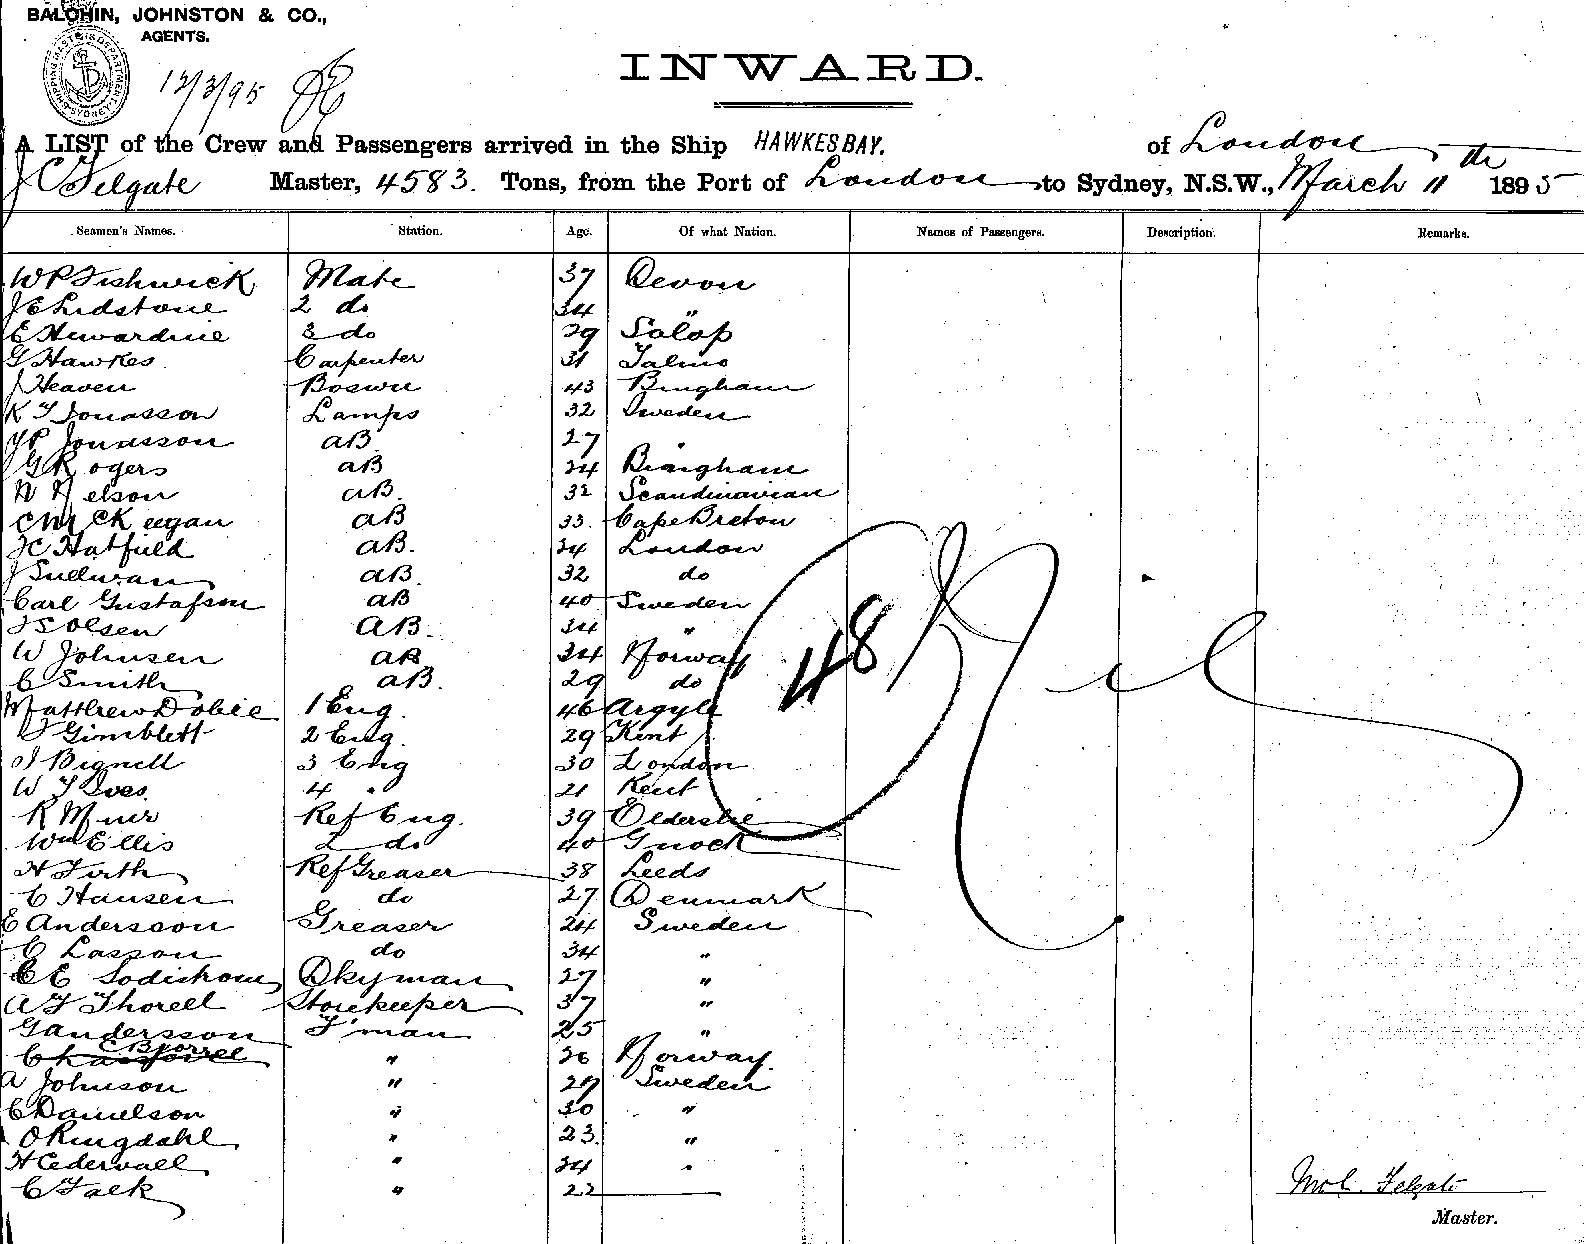 BALCHIN, JOHNSTON & CO.,
AGENTS.
12/3/95
INWARD.
A LIST of the Crew and Passengers arrived in the Ship HAWKESBAY. of London
J C Felgate Master, 4583. Tons, from the Port of London to Sydney, N.S.W., March 11th 1895
Seamen's Names. Station. Age. Of what Nation. Names of Passengers. Description. Remarks.
W P Fishwick Mate 37 Devon
J C Lidstone 2 do 34 "
E Hewardine 3 do 29 Salop
G Hawkes Carpenter 31
J Heaven Boswn 43 Bingham
K T Jonasson Lamps 32 Sweden
J P Jonasson aB 27 "
G Rogers aB 34 Bingham
N Nelson aB. 32 Scandinavian
C McKeegan aB 33. Cape Breton
J C Hatfield aB. 34 London
J Sullivan aB. 32 do
Carl Gustafson aB 40 Sweden
J S Olsen aB. 34 "
W Johnsen aB 34 Norway
C Smith aB. 29 do
Matthew Dobie 1 Eng. 46 Argyle
J Gimblett 2 Eng. 29 Kent
J Bignell 3 Eng 30 London
W T Ives 4 " 21 Kent
R Muir Ref Eng. 39 Elderslie
Wm Ellis 2 do 40
H Firth Ref Greaser 38 Leeds
C Hansen do 27 Denmark
E Andersson Greaser 24 Sweden
C Lasson do 34 "
C E Dkyman 27 "
A F Thorell Storekeeper 37 "
G Andersson F'man 25 "
C Bjorrel
" 26 Norway.
A Johnson " 27 Sweden
C Danielson " 30 "
O Ringdahl " 23. "
H Cedervall " 34 "
C Falk " 22
48 Nil
Felgate
Master.